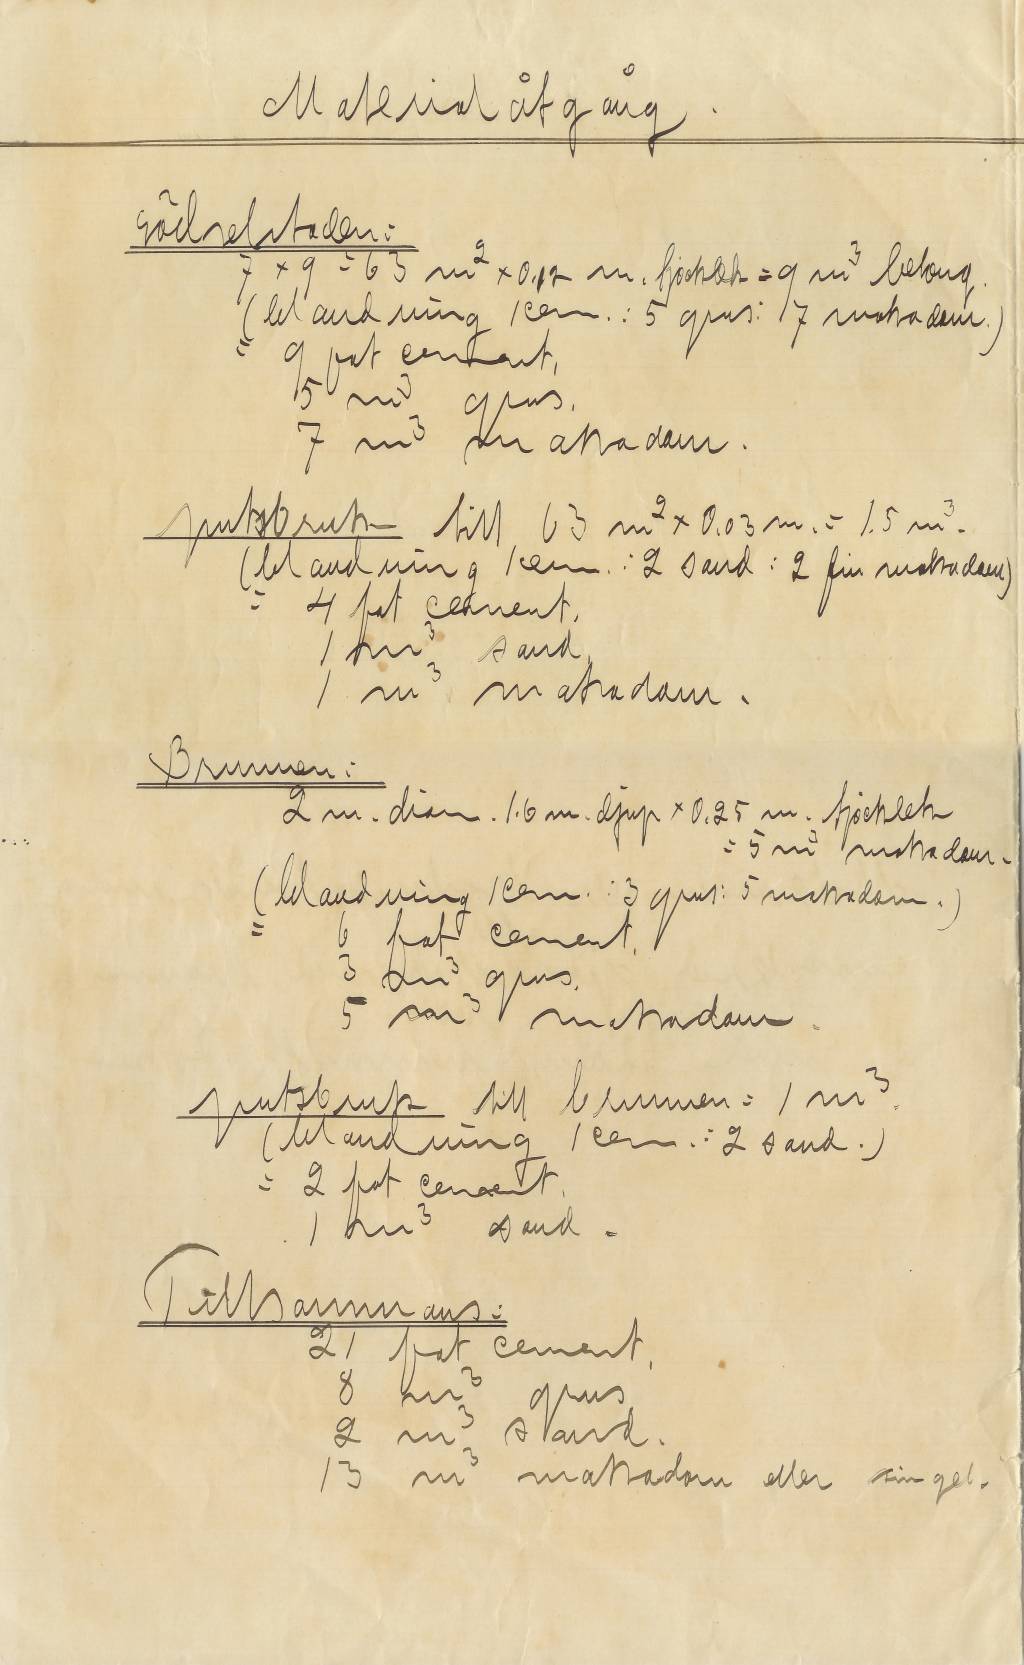 Materialåtgång.
Gödselstaden:
7 × 9 = 63 m² × 0.12 m. tjocklek = 9 m³ betong.
(blandning 1 cem. : 5 grus : 7 makadam.)
= 9 fat cement.
5 m³ grus.
7 m³ makadam.
putsbruk till 63 m² × 0.03 m. = 1.5 m³.
(blandning 1 cem. : 2 sand : 2 fin makadam)
= 4 fat cement.
1 m³ sand.
1 m³ makadam.
Brunnen:
2 m. diam. 1.6 m. djup × 0.25 m. tjocklek
= 5 m³ makadam.
(blandning 1 cem. : 3 grus : 5 makadam.)
= 6 fat cement.
3 m³ grus.
5 m³ makadam.
putsbruk till brunnen = 1 m³.
(blandning 1 cem. : 2 sand.)
= 2 fat cement.
1 m³ sand.
Tillsammans:
21 fat cement.
8 m³ grus.
2 m³ sand.
13 m³ makadam eller singel.